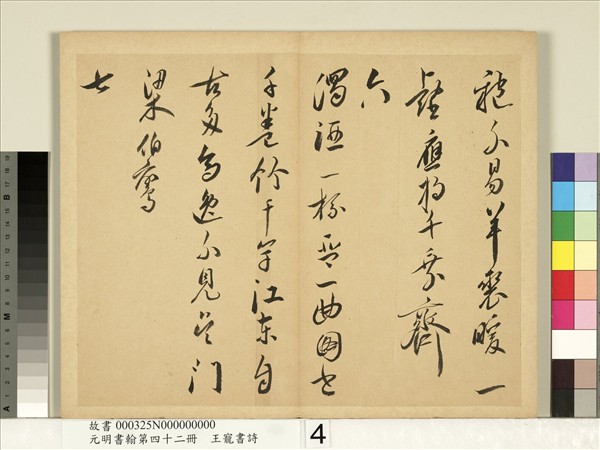 不易羊裘暖一
應將千乘齊
六
濁酒一杯琴一曲圖書
千卷竹千竿江東自
古多高逸不見吳門
梁伯鸞
七
故書 000325N000000000
元明書翰第四十二冊 王寵書詩
4